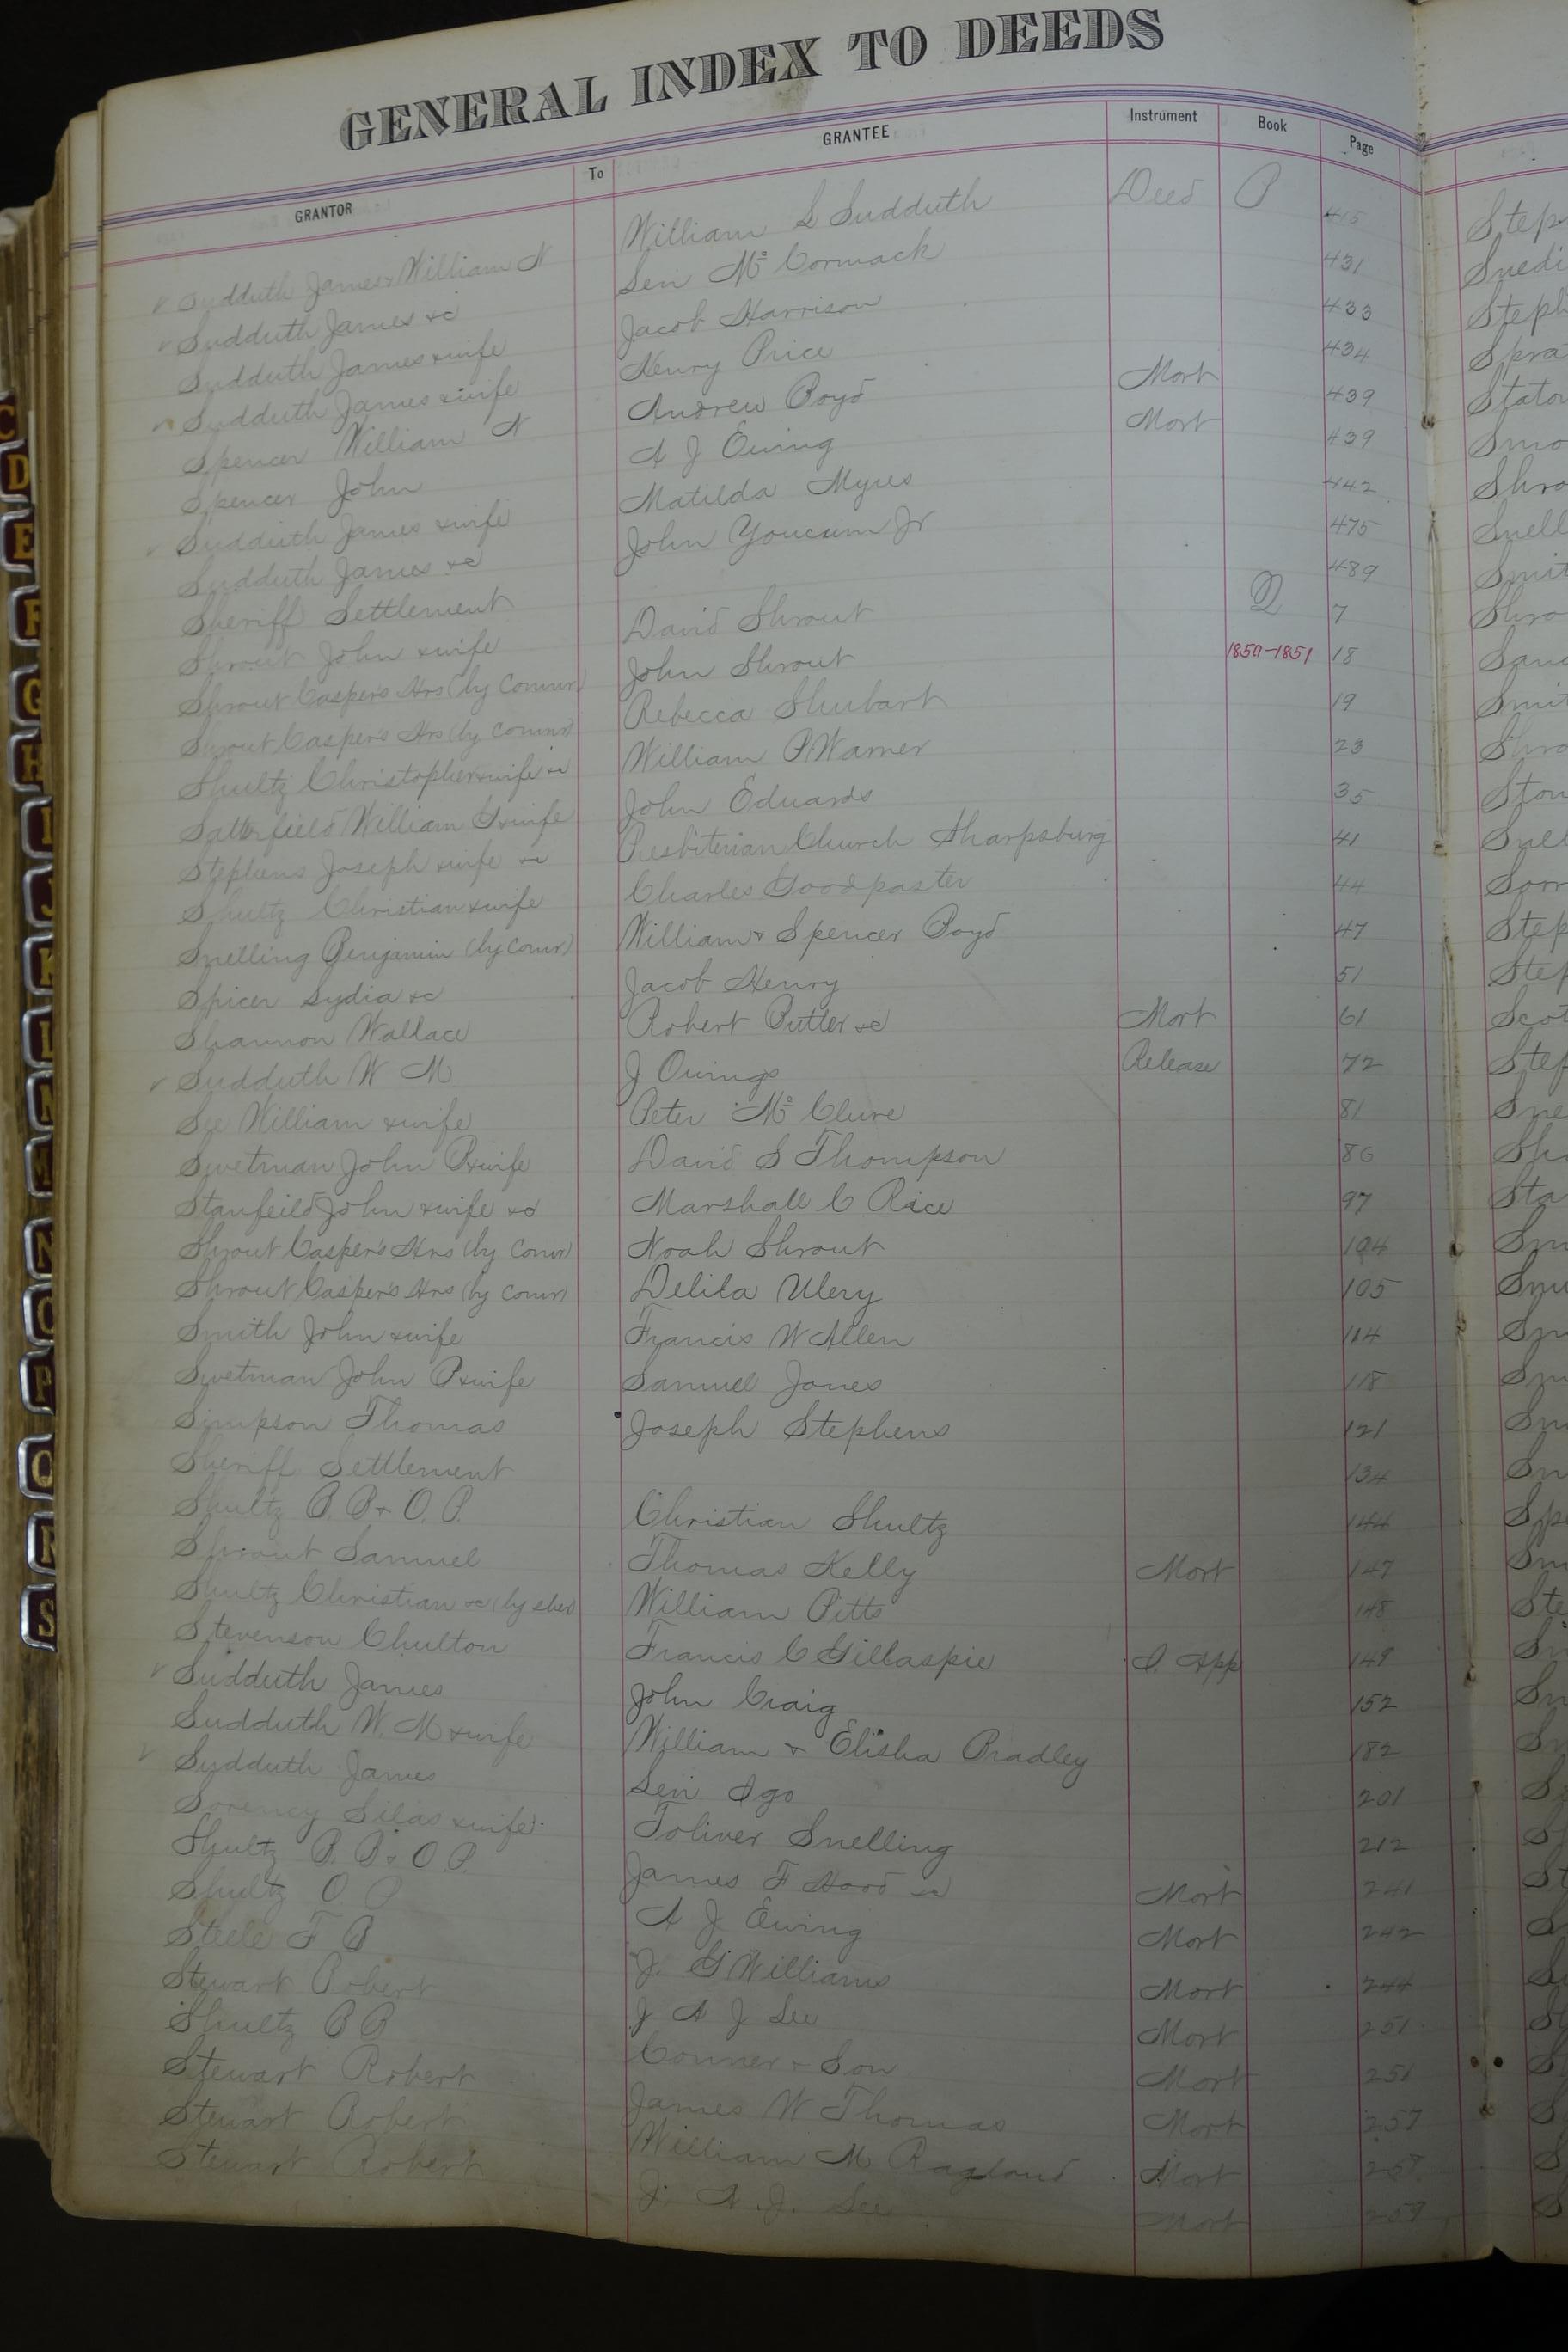 GENERAL INDEX TO DEEDS
GRANTOR To GRANTEE Instrument Book Page
Sudduth James & William N William S Sudduth Deed P 415
Sudduth James &c Levi Mc Cormack 431
Sudduth James & wife Jacob Harrison 433
Sudduth James & wife Henry Price 434
Spencer William N Andrew Boyd Mort 439
Spencer John A J Ewing Mort 439
Sudduth James & wife Matilda Myres 442
Sudduth James &c John Youcum Jr 475
Sheriff Settlement 489
Shrout John & wife David Shrout Q 7
Shrout Casper's Hrs (by Comnr) John Shrout 1850-1851 18
Shrout Casper's Hrs (by Comnr) Rebecca Shubart 19
Shultz Christopher & wife &c William P Warner 23
Satterfield William G & wife John Edwards 35
Stephens Joseph & wife &c Presbiterian Church Sharpsburg 41
Shultz Christian & wife Charles Goodpaster 44
Snelling Benjamin (by Comr) William & Spencer Boyd 47
Spicer Lydia &c Jacob Henry 51
Shannon Wallace Robert Butler &c Mort 61
Sudduth W M J Owings Release 72
See William & wife Peter Mc Clure 81
Swetman John P & wife David S Thompson 86
Stanfeild John & wife &c Marshall C Rice 97
Shrout Casper's Hrs (by Comr) Noah Shrout 104
Shrout Casper's Hrs (by Comr) Delila Ulery 105
Smith John & wife Francis W Allen 114
Swetman John P & wife Samuel Jones 118
Simpson Thomas Joseph Stephens 121
Sheriff Settlement 134
Shultz B. B & O. P. Christian Shultz 144
Shrout Samuel Thomas Kelly Mort 147
Shultz Christian &c (by sher) William Pitts 148
Stevenson Chulton Francis C Gillaspie App 149
Sudduth James John Craig 152
Sudduth W. M & wife William & Elisha Bradley 182
Sudduth James Levi Igo 201
Sorency Silas & wife Toliver Snelling 212
Shultz B. B & O P. James F Hood &c Mort 241
Shultz O P A J Ewing Mort 242
Steele F B J. G Williams Mort 244
Stewart Robert J A J See Mort 251
Shultz B B Conner & Son Mort 251
Stewart Robert James W Thomas Mort 257
Stewart Robert William M Ragland Mort
Stewart Robert J. A. J. See Mort 259
C
D
E
F
G
H
I
J
K
L
M
N
O
P
Q
R
S